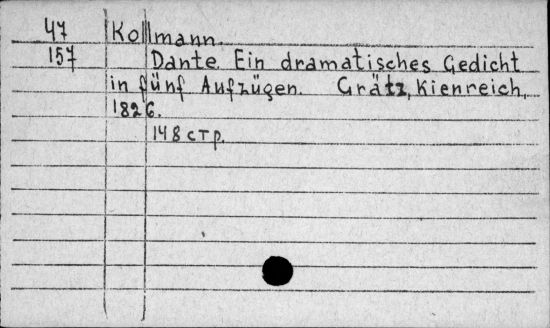 47 Kollmann.
157 Dante. Ein dramatisches Gedicht
in fünf Aufzügen. Grätz, Kienreich,
1826.
148 стр.